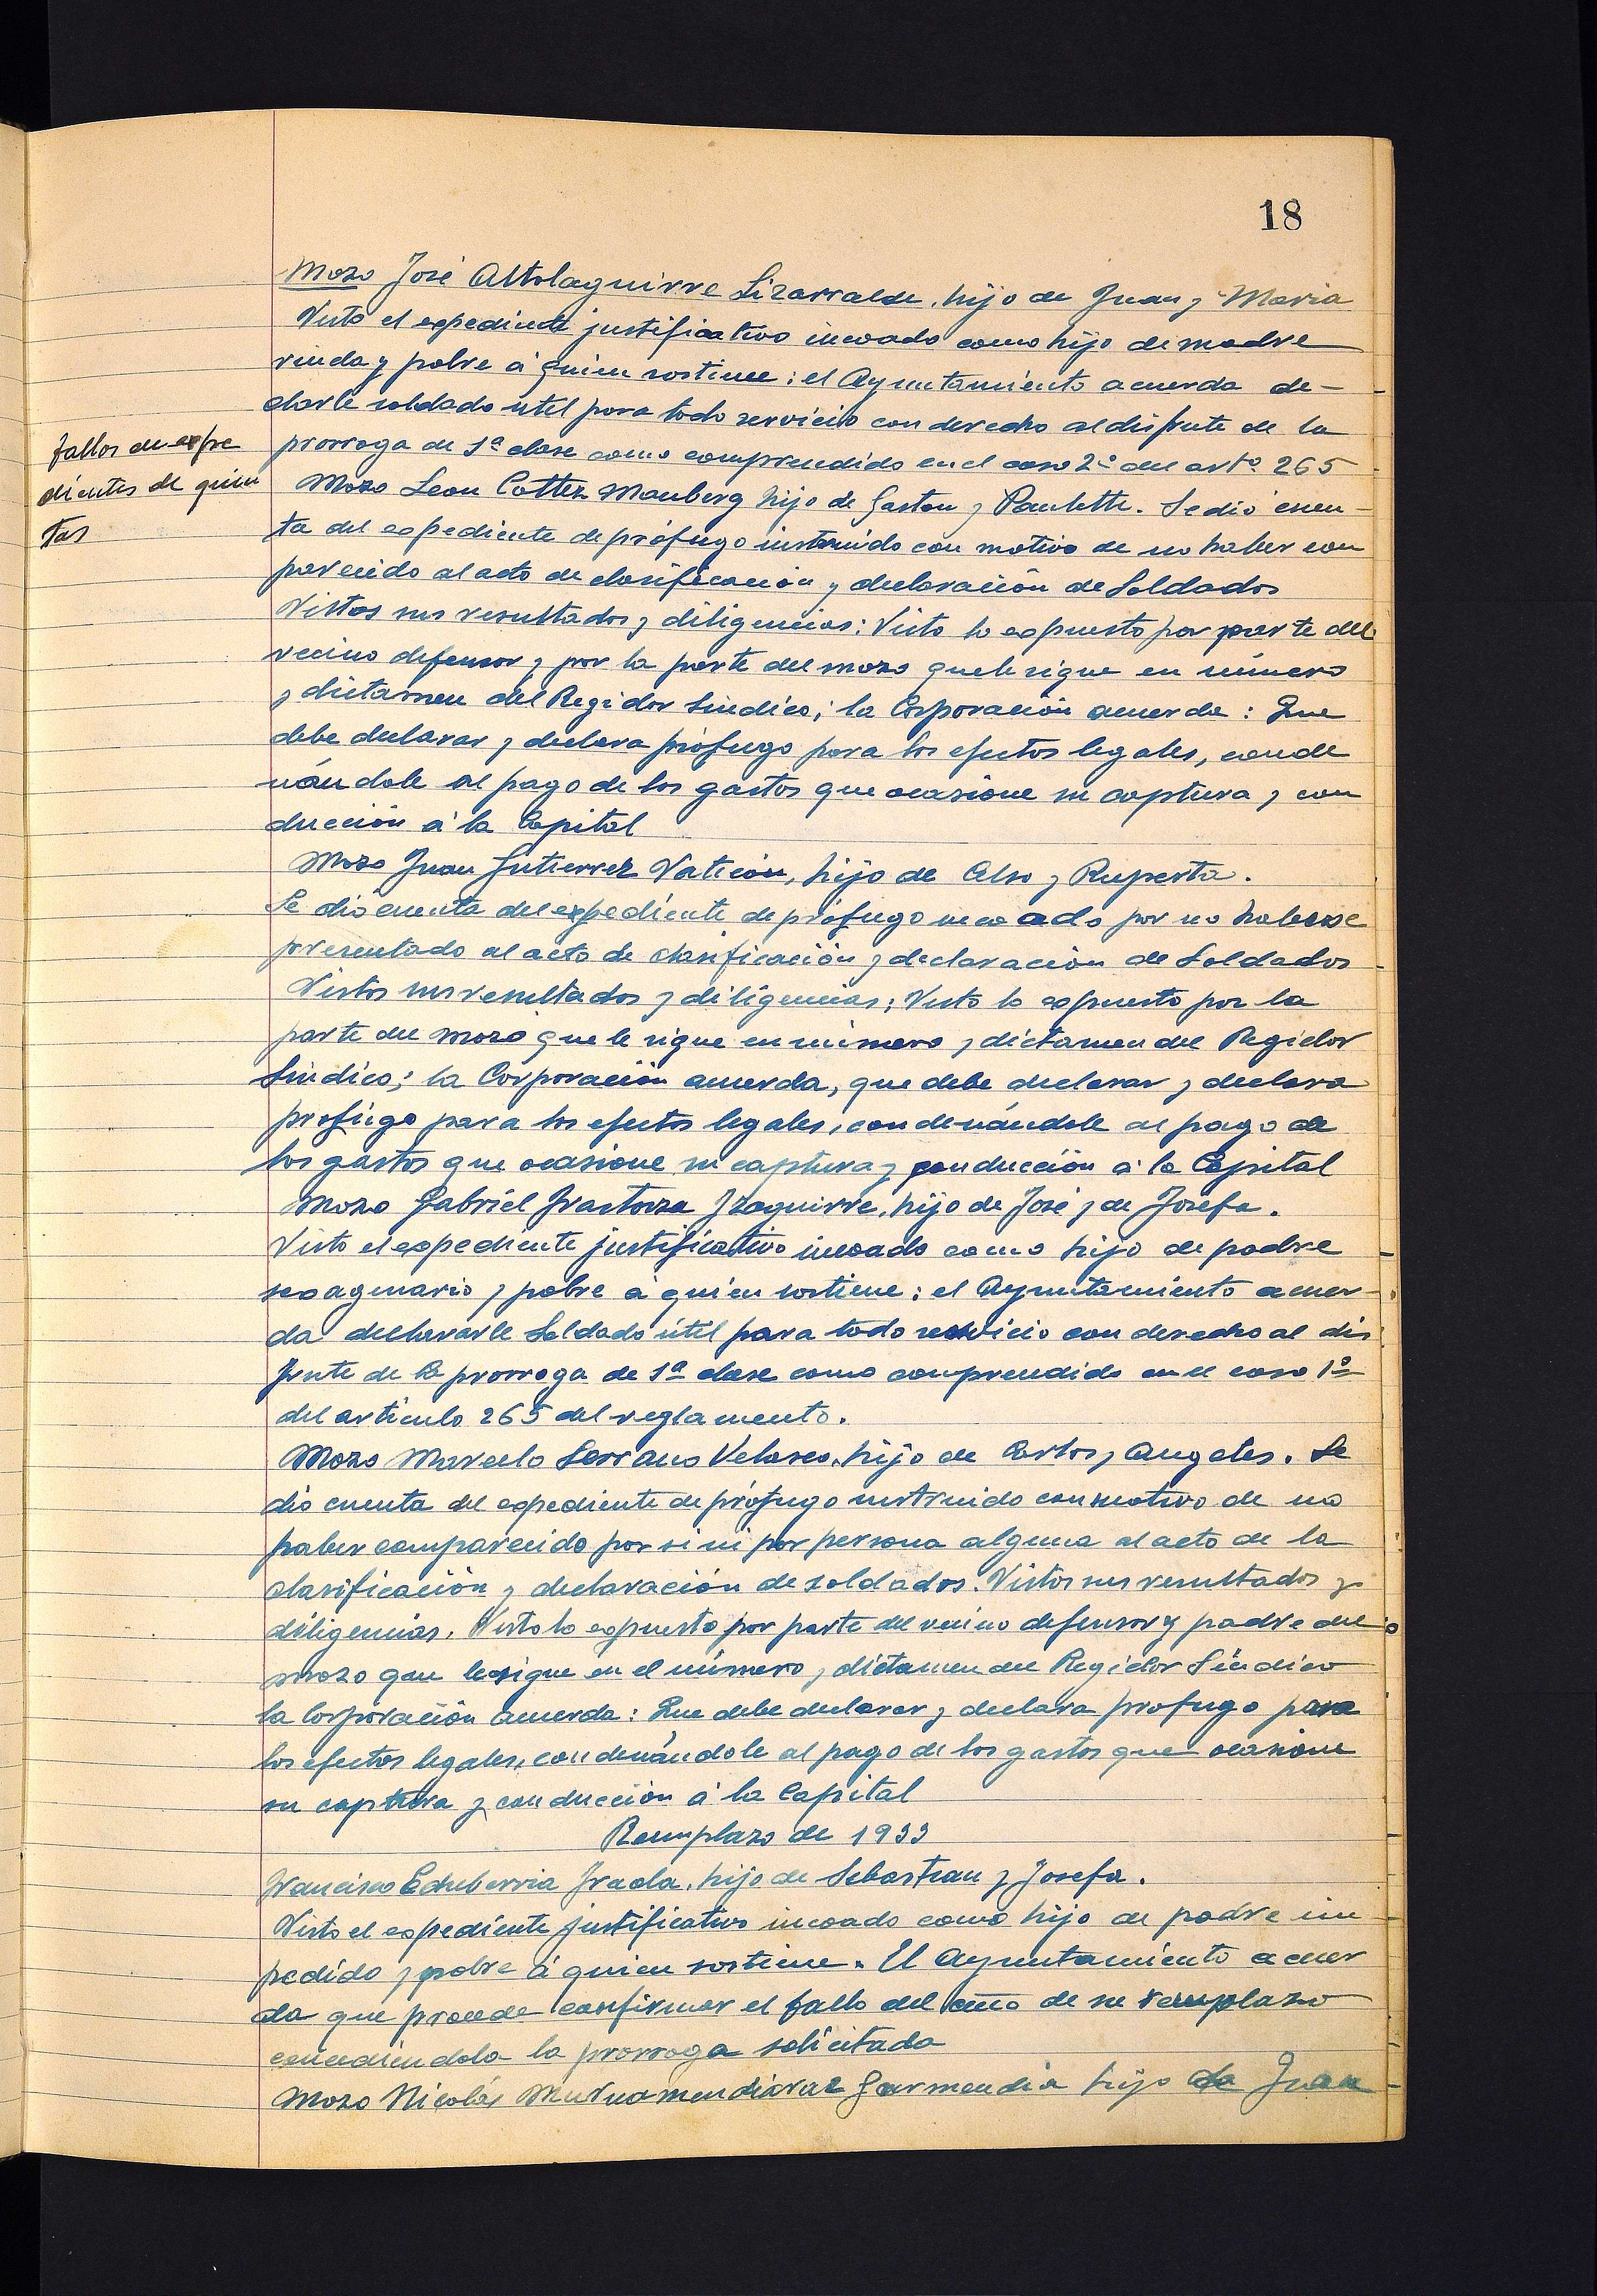 18
Mozo José Altolaguirre Lizarralde, hijo de Juan y Maria
Visto el expediente justificativo incoado como hijo de madre
viuda y pobre á quien sostiene: el Ayuntamiento acuerda de-
clarle soldado útil para todo servicio con derecho al disfrute de la
prorroga de 1ª clase como comprendido en el caso 2º del artº 265
fallos de expe
dientes de quin
tas
Mozo Leon Cottez Mauberg hijo de Gaston y Paulette. Se dió cuen-
ta del expediente de prófugo instruido con motivo de no haber com
parecido al acto de clasificación y declaración de Soldados
Vistos sus resultados y diligencias: Visto lo expuesto por parte del
vecino defensor y por la parte del mozo que le sigue en número
y dictamen del Regidor Sindico; la Corporación acuerda: Que
debe declarar y declara prófugo para los efectos legales, conde
nándole al pago de los gastos que ocasione su captura y con
ducción á la Capital
Mozo Juan Gutierrez Vatición, hijo de Celso y Ruperta.
Se dió cuenta del expediente de prófugo incoado por no haberse
presentado al acto de clasificación y declaración de Soldados
Vistos sus resultados y diligencias; Visto lo expuesto por la
parte del mozo que le sigue en número y dictamen del Regidor
Sindico; la Corporación acuerda, que debe declarar y declara
profugo para los efectos legales, condenándole al pago de
los gastos que ocasione su captura y conducción á la Capital
Mozo Gabriel Irastorza Izaguirre, hijo de José y de Josefa.
Visto el expediente justificativo incoado como hijo de padre
sexagenario y pobre á quien sostiene: el Ayuntamiento acuer-
da declararle Soldado útil para todo servicio con derecho al dis
frute de la prorroga de 1ª clase como comprendido en el caso 1º
del articulo 265 del reglamento.
Mozo Marcelo Serrano Velasco, hijo de Carlos y Angeles. Se
dio cuenta del expediente de prófugo instruido con motivo de no
haber comparecido por si ni por persona alguna al acto de la
clasificación y declaración de soldados. Vistos sus resultados y
diligencias. Visto lo expuesto por parte del vecino defensor y padre del
mozo que le sigue en el número y dictamen del Regidor Sindico
la Corporación acuerda: Que debe declarar y declara profugo para
los efectos legales, condenándole al pago de los gastos que ocasione
su captura y conducción á la Capital
Reemplazo de 1933
Francisco Echeberria Iraola, hijo de Sebastian y Josefa.
Visto el expediente justificativo incoado como hijo de padre im
pedido y pobre á quien sostiene. El Ayuntamiento acuer
da que procede confirmar el fallo del año de su reemplazo
concediendola la prorroga solicitada
Mozo Nicolás Murua mendiaraz Garmendia hijo de Juan